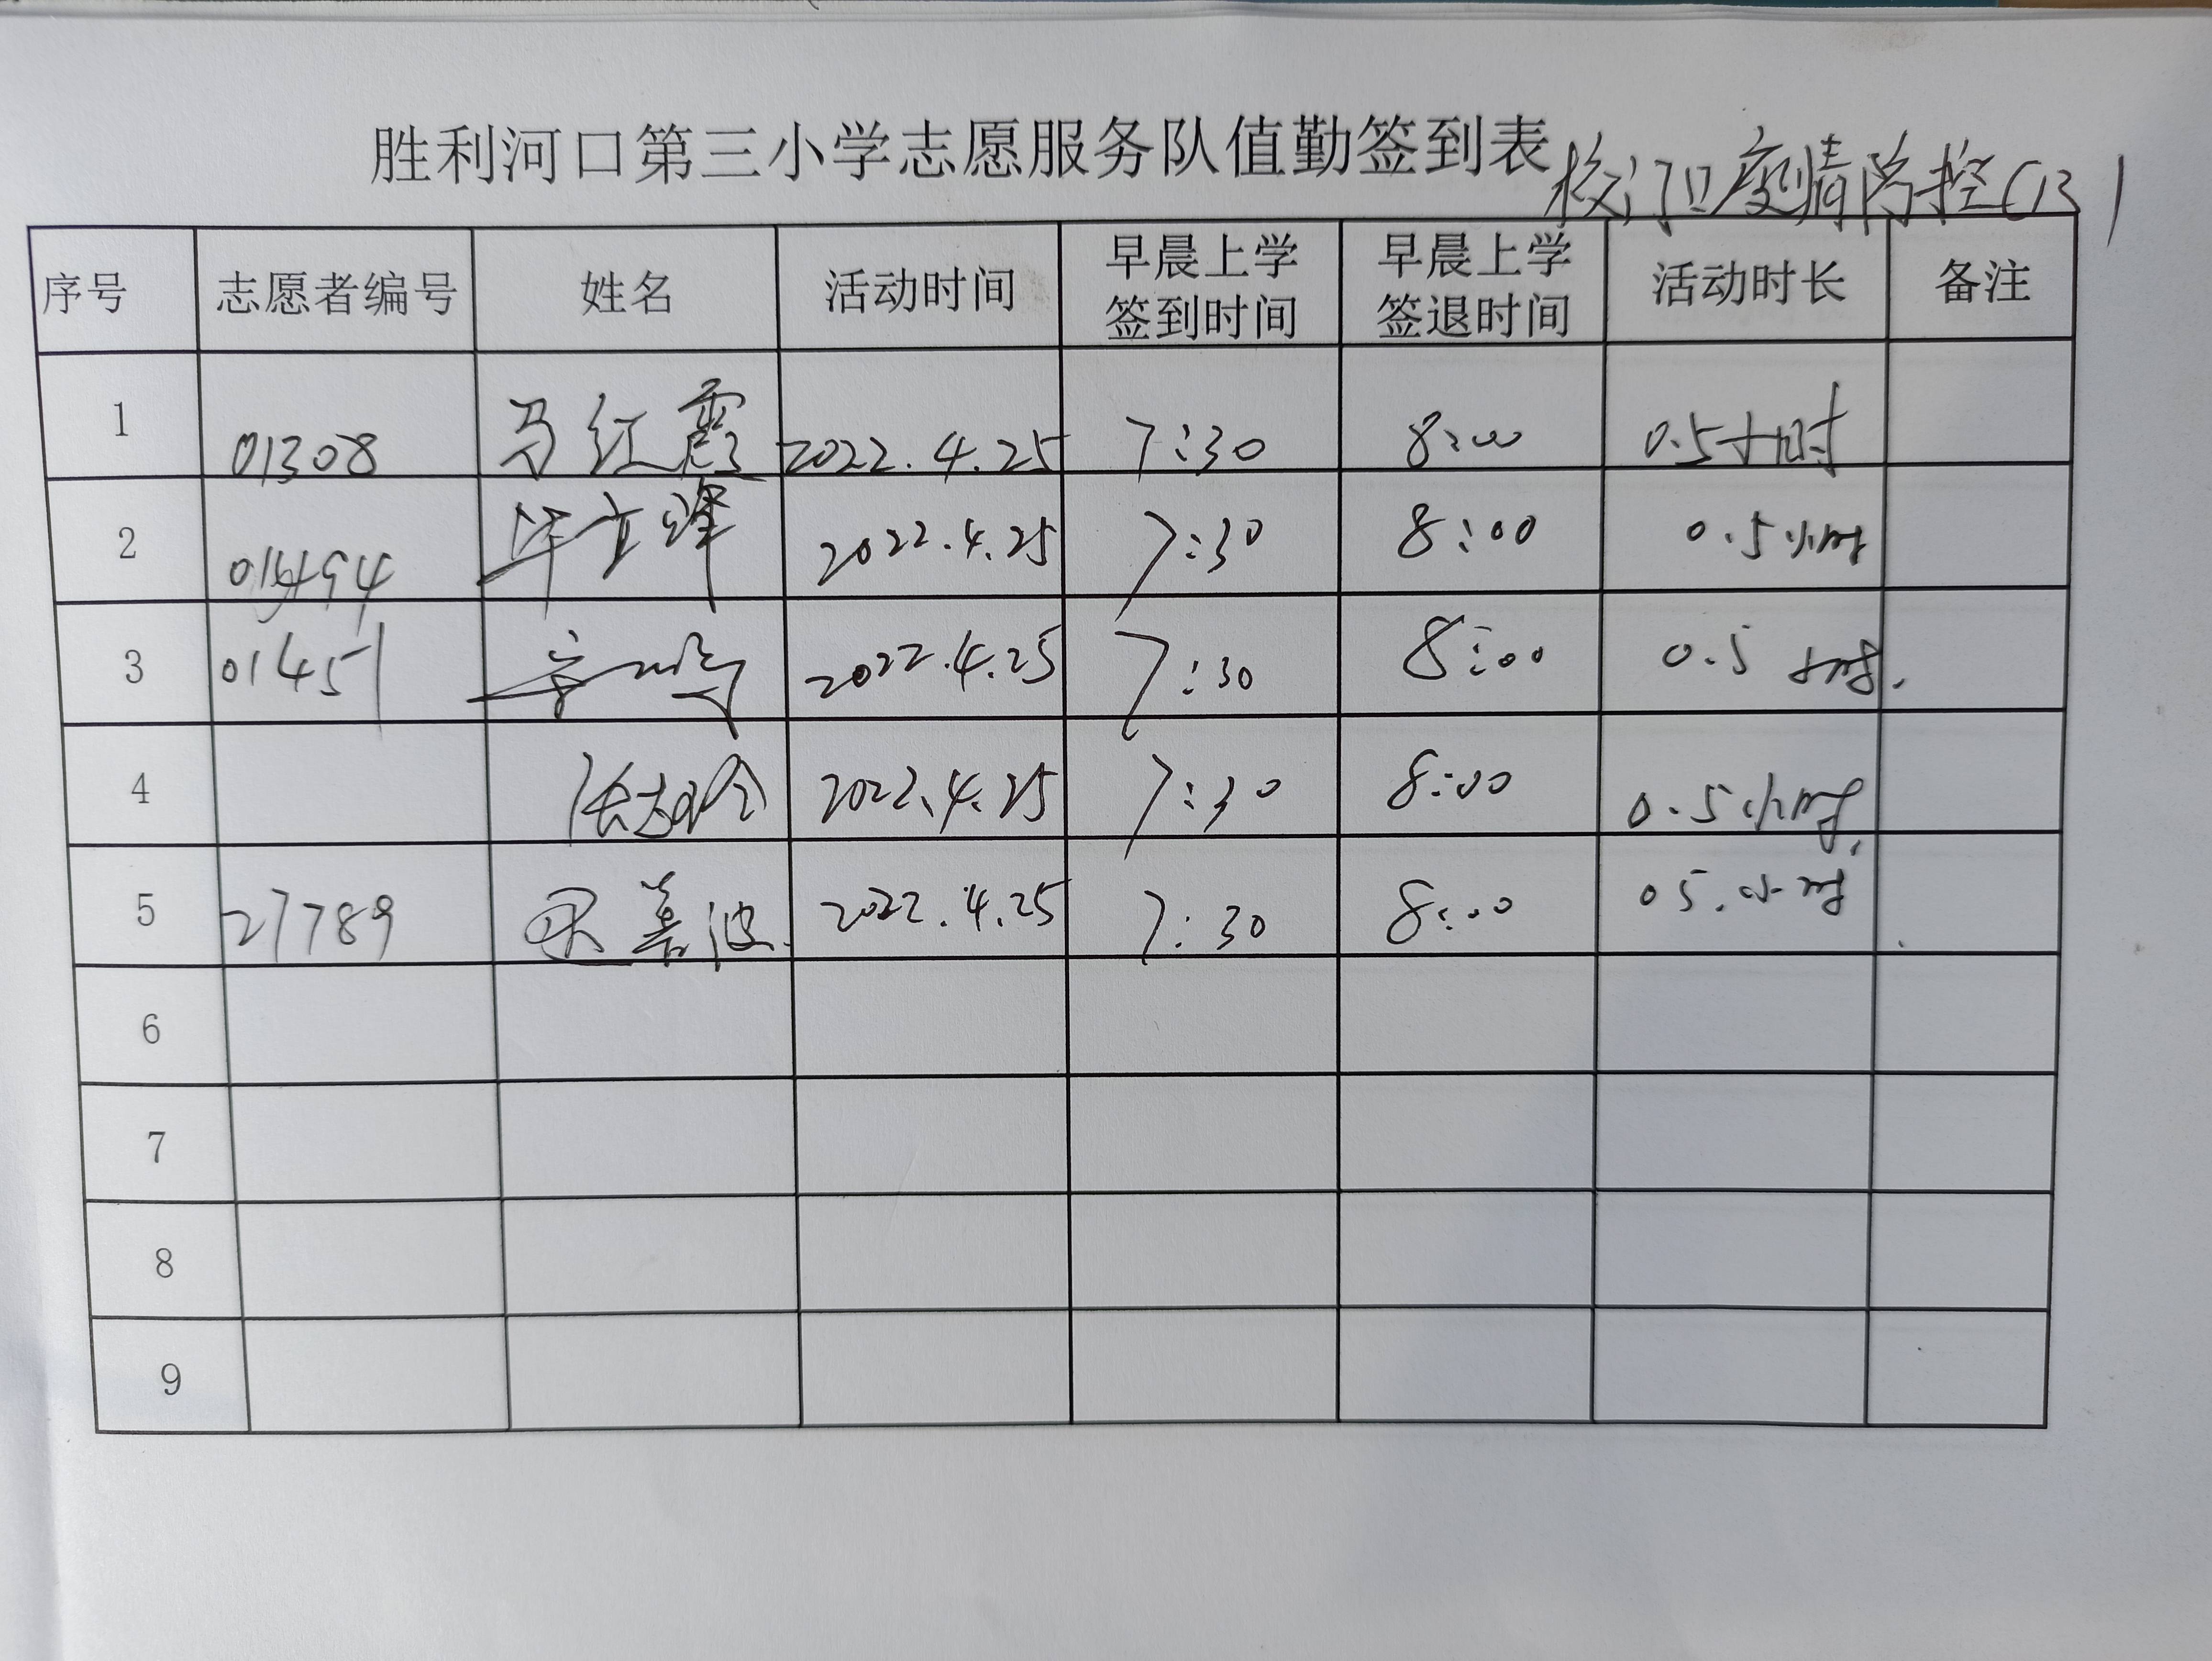 胜利河口第三小学志愿服务队值勤签到表 校门口疫情防控(13)
序号 志愿者编号 姓名 活动时间 早晨上学签到时间 早晨上学签退时间 活动时长 备注
1 01308 马红霞 2022.4.25 7:30 8:00 0.5小时
2 毕立峰 2022.4.25 7:30 8:00 0.5小时
3 01451 2022.4.25 7:30 8:00 0.5小时.
4 2022.4.25 7:30 8:00 0.5小时.
5 27789 2022.4.25 7:30 8:00 05.小时
6
7
8
9